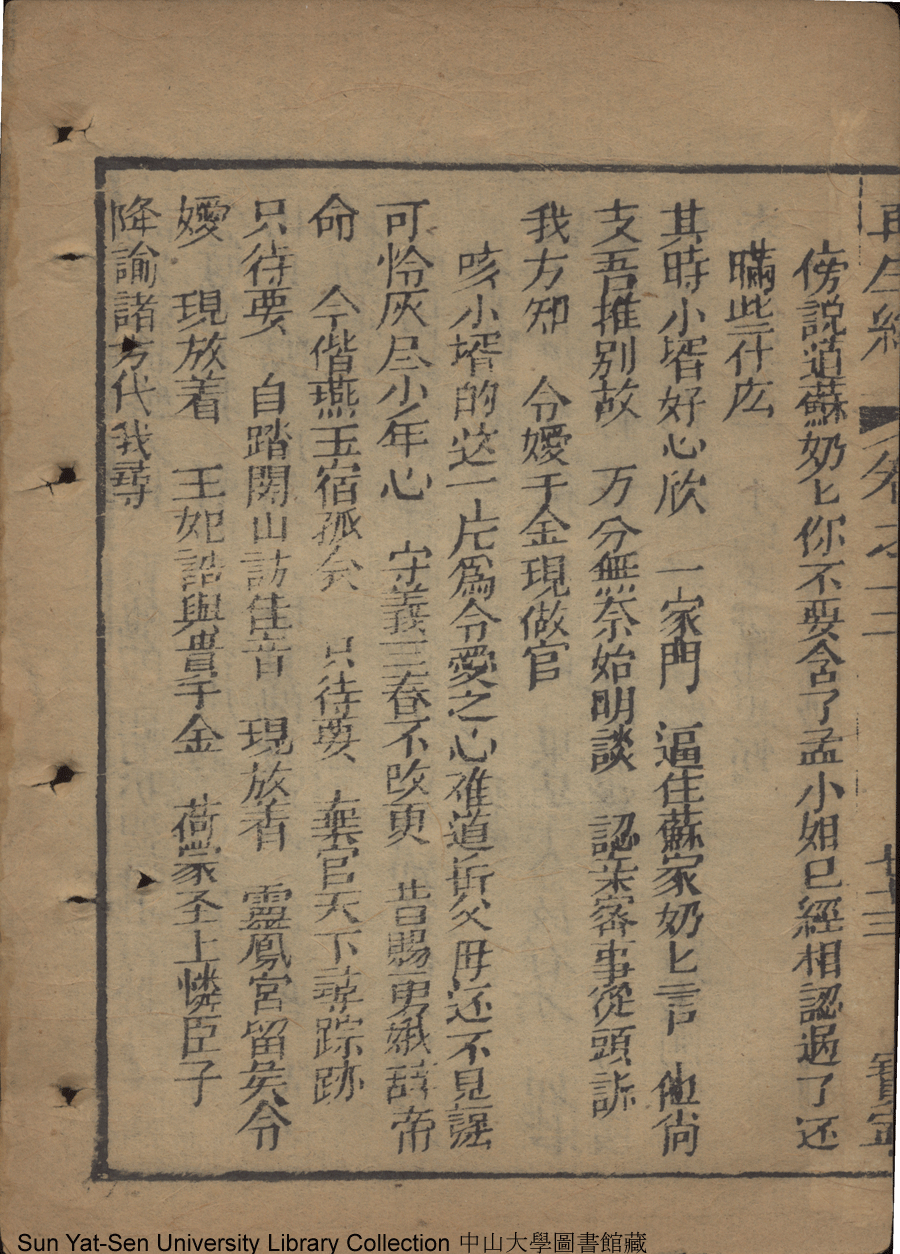 再生緣 卷之十二 七十三
傍説道蘇奶匕你不要含了孟小姐已經相認過了还
瞞些什庅
其時小壻好心欣 一家門 逼住蘇家奶匕言 他尚
支吾推别故 万分無奈始明談 認亲審事從頭訴
我方知 令嬡千金現做官
咳小壻的这一片爲令愛之心难道岳父母还不見諒
可怜灰尽小年心 守義三春不改更 昔賜男娥辞帝
命 今偕燕玉宿孤矣 只待要 棄官天下尋踪跡
只待要 自踏関山訪佳音 現放着 靈鳳宮留矣令
嬡 現放着 王妃誥與貴千金 荷蒙圣上憐臣子
降諭諸方代我尋
Sun Yat-Sen University Library Collection 中山大學圖書館藏